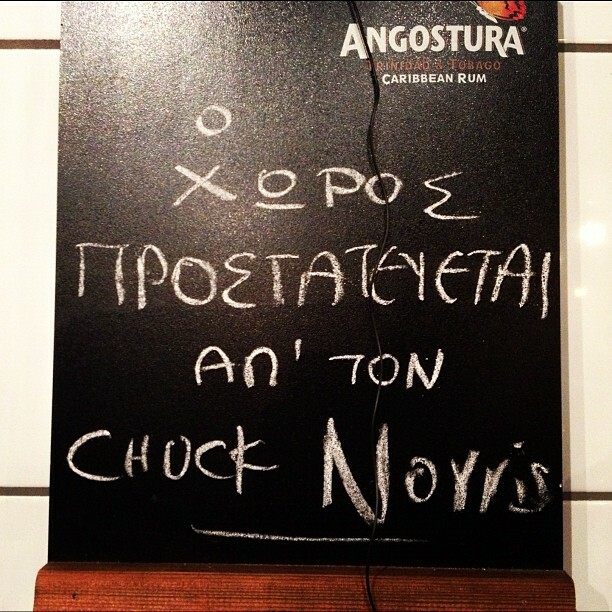 ANGOSTURA®
TRINIDAD & TOBAGO
CARIBBEAN RUM
Ο
ΧΩΡΟΣ
ΠΡΟΣΤΑΤΕΥΕΤΑΙ
ΑΠ' ΤΟΝ
CHUCK Norris